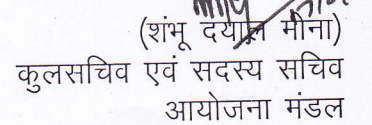 (शंभू दयाल मीना)
कुलसचिव एवं सदस्य सचिव
आयोजना मंडल